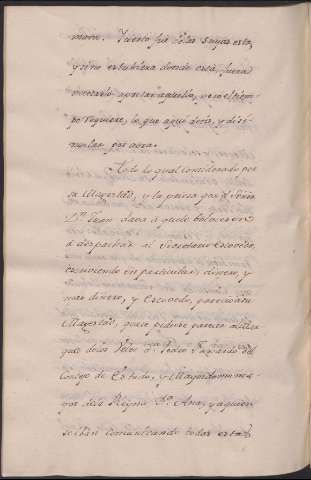 mano. Fuerte fue Señor suyas esta,
y si no estubiera donde está, fuera
apretar aquello, pero el tiem-
po requiere, lo que aqui desis, y disi-
mular por aora.
Todo lo qual considerado por
su Magestad, y la priesa que el Señor
Dn. Juan dava á qe. le bolviesen
á despachar al Secretario Escovedo,
escriviendo en particular dinero, y
mas dinero, y Escovedo, pareció á su
Magestad, que se pidiese parecer al Mar-
ques de los Velez Dn. Pedro Faxardo del
Consejo de Estado, y Mayordomo ma-
yor dela Reyna Dª. Ana, y aquien
se iban comunicando todas estas